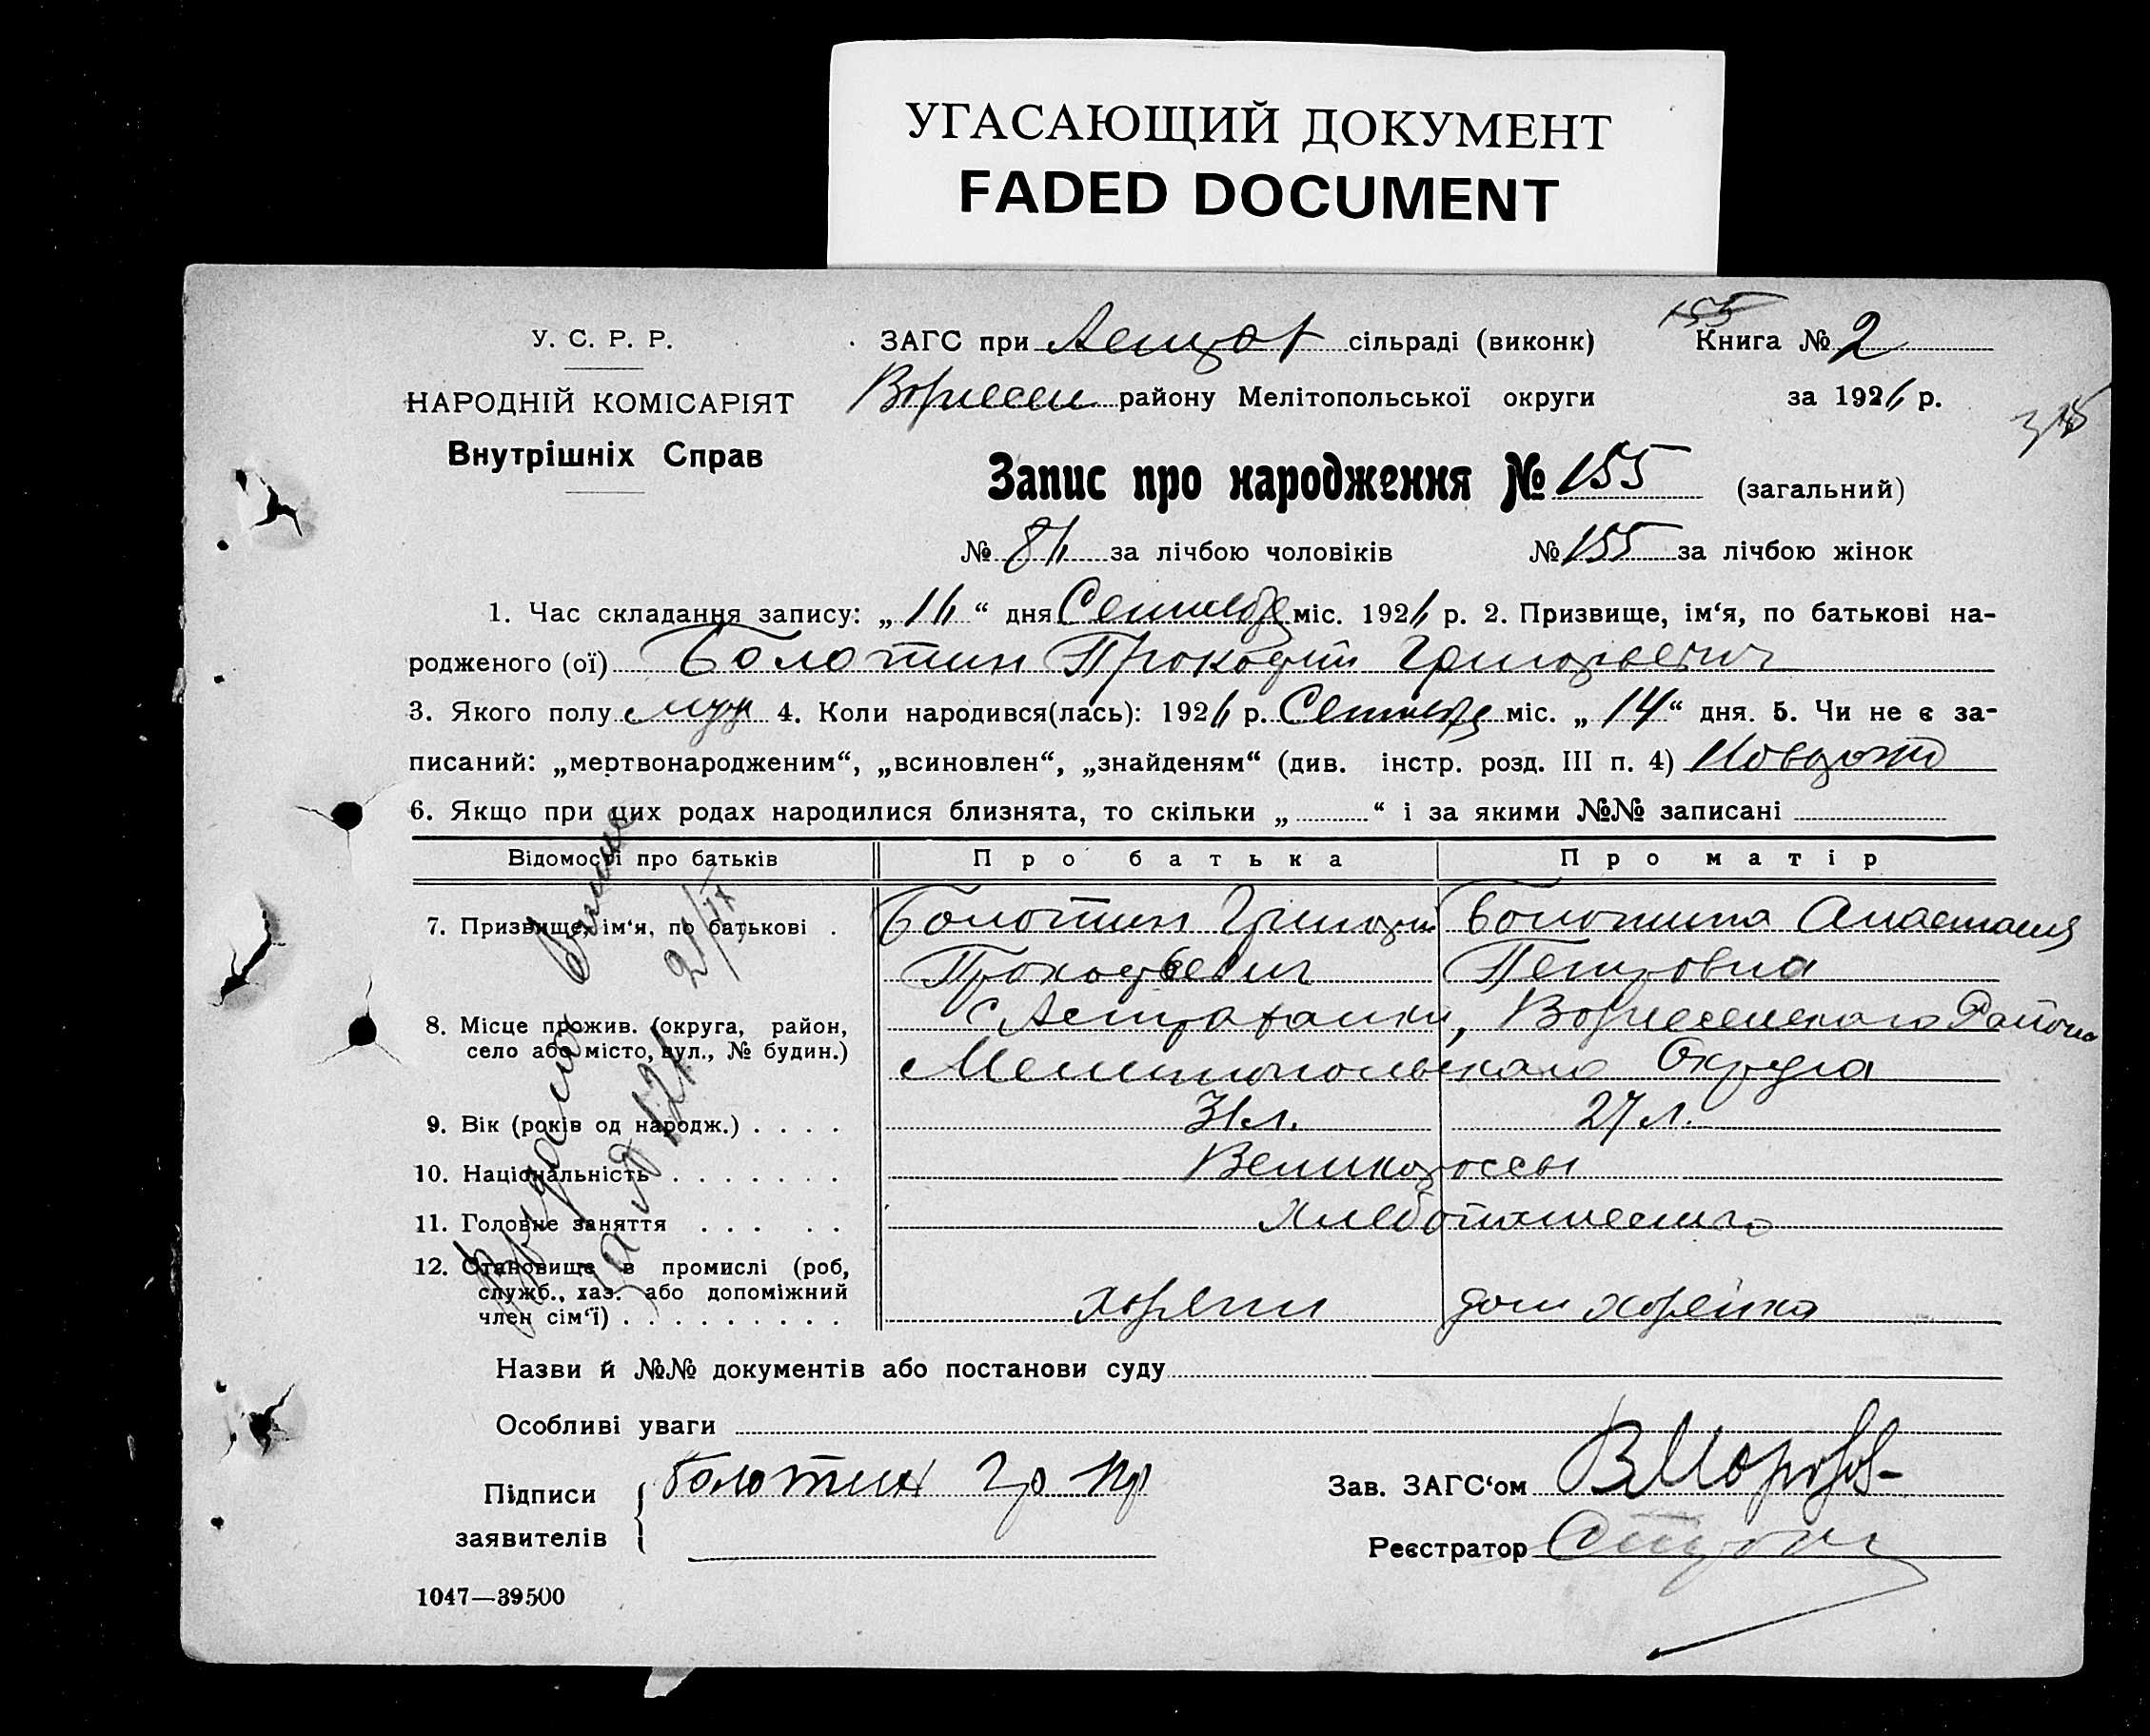 УГАСАЮЩИЙ ДОКУМЕНТ
FADED DOCUMENT
У. С. Р. Р.
НАРОДНІЙ КОМІСАРІЯТ
Внутрішніх Справ
ЗАГС при Астрах сільраді (виконк)
155
Книга № 2
Вознесен району Мелітопольської округи
за 1926 р.
Запис про народження № 155 (загальний)
№ 86 за лічбою чоловіків № 155 за лічбою жінок
1. Час складання запису: „16“ дня Сентября міс. 1926 р. 2. Призвище, ім‘я, по батькові на-
родженого (ої) Болотин Прокофий Григорьевич
3. Якого полу муж 4. Коли народився(лась): 1926 р. Сентября міс. „14“ дня. 5. Чи не є за-
писаний: „мертвонародженим“, „всиновлен“, „знайденям“ (див. інстр. розд. III п. 4)
6. Якщо при цих родах народилися близнята, то скільки „ “ і за якими №№ записані
Відомості про батьків Про батька Про матір
7. Призвище, ім‘я, по батькові . Болотин Григорий Болотина Анастасия
Прокофьевич Петровна
8. Місце прожив. (округа, район, село або місто, вул., № будин.) с Астраханки, Вознесенского Района
Мелитопольского Округа
9. Вік (років од народж.) . . . . 31 л. 27 л.
10. Національність . . . . . . . Великороссы
11. Головне заняття . . . . . Хлебопашество
12. Становище в промислі (роб,
служб., хаз. або допоміжний
член сім‘ї) . . . . . . . . . хозяин дом хозяйка
21/IX
Назви й №№ документів або постанови суду
Особливі уваги
Підписи
заявителів
Болотин Гр Пр
Зав. ЗАГС‘ом ВМорозов
Реєстратор
1047—39500